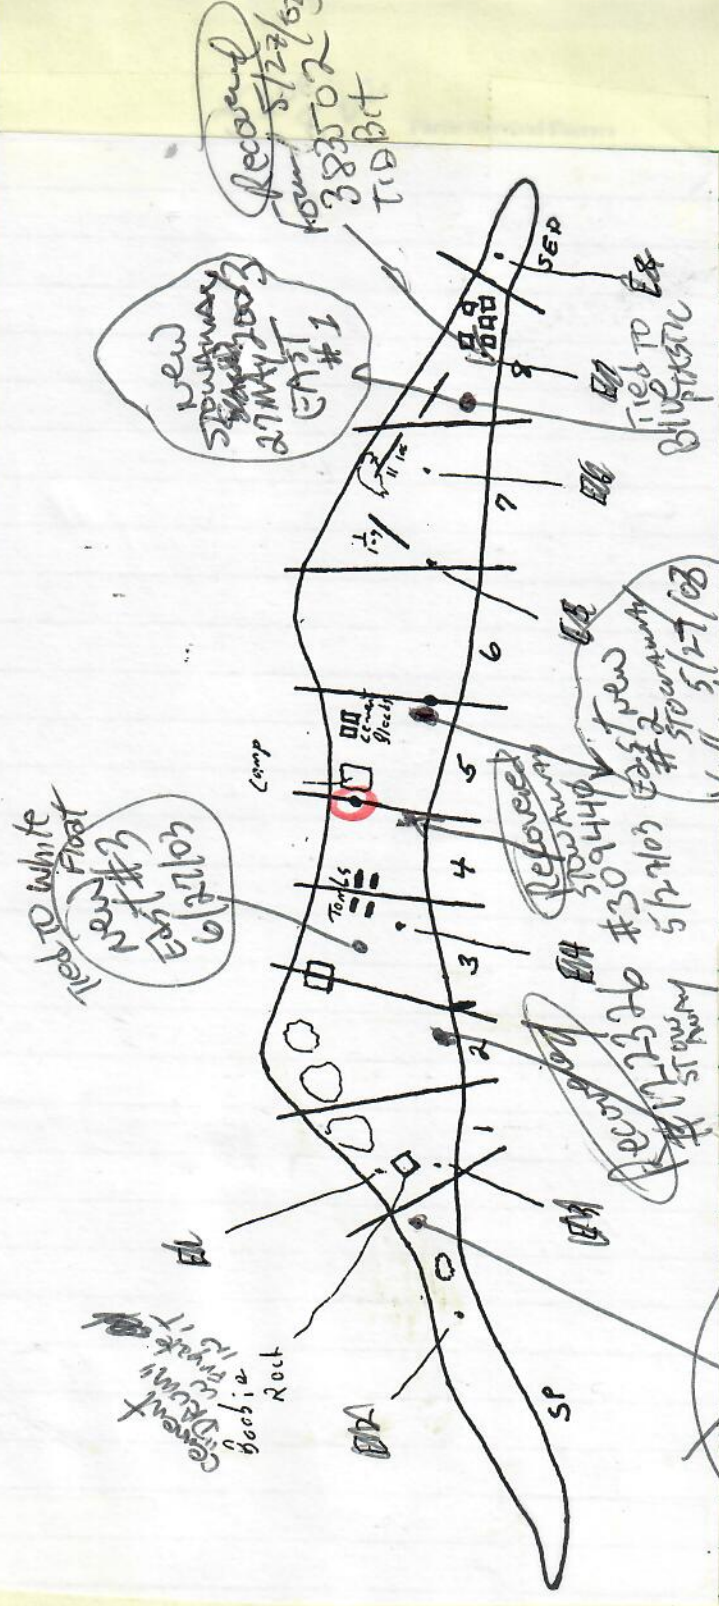 Recovered
Found 5/27/03
383502
TIDBIT
New
STOWAWAY
27 MAY 2003
EAST
#1
SEP
E8
8
E7
Tied TO
Blue
PLASTIC
7
E6
log
E5
6
East New
#2
STOWAWAY
5/27/03
Cement
Blocks
Camp
5
Recovered
STOWAWAY
#309440
5/27/03
4
Tombs
Tied TO White
Float
New
East #3
6/27/03
3
E4
2
Recovered
#122326
STOW
AWAY
1
E3
E1
Cement
"DRUM"
IN IT
Boobie
Rock
E2
SP